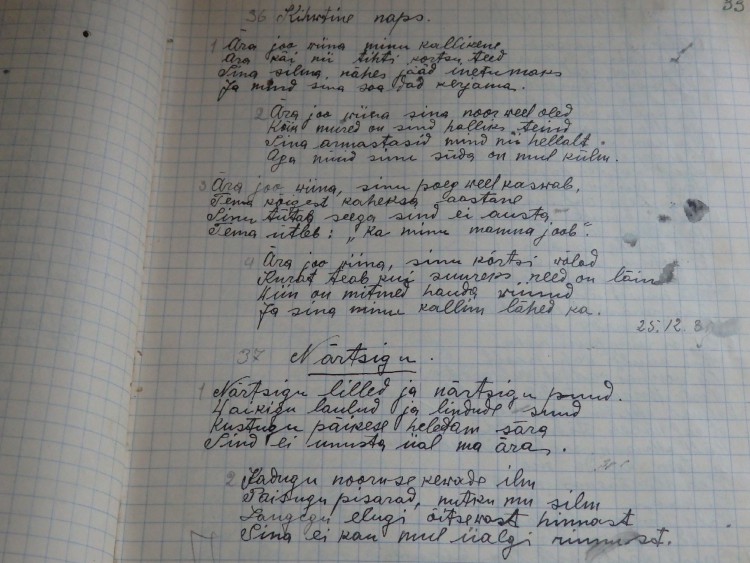 33
36 Kihwtine naps.
1 Ära joo wiina minu kallikene
Ära käi nii tihti kortsu teed
Sina silma nähes jääd inetumaks
Ja mind sina saadad kerjama.
2 Ära joo wiina sina noor weel oled
Kõik mured on sind halliks teind
Sina armastasid mind nii hellalt
Aga nüüd sinu süda on mul külm.
3 Ära joo wiina, sinu poeg weel kaswab,
Tema kõigest kaheksa aastane
Sinu tütar seega sind ei austa
Tema ütleb: „Ka minu mamma joob".
4 Ära joo wiina, sinu kõrtsi wolad
Kurat teab kui suureks need on läind
Wiin on mitmed hauda wiinud
Ja sina minu kallim lähed ka.
25.12
37 Närtsigu.
1 Närtsigu lilled ja närtsigu puud.
Waikigu laulud ja lindude suud
Kustugu päikese heledam sära
Sind ei unusta iial ma ära.
2 Kadugu nooruse kewade ilm
Paisugu pisarad, nutku mu silm
Langegu elugi õitsewast hinnast
Sina ei kau mul iialgi rinnust.